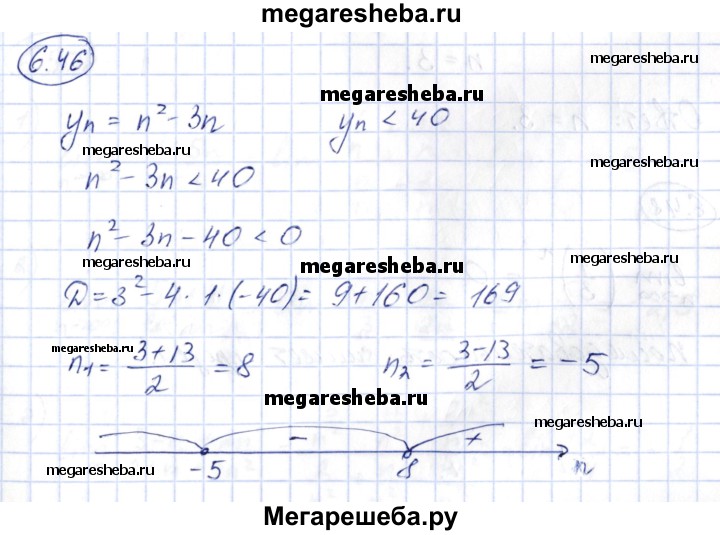 megaresheba.ru
6.46
megaresheba.ru
megaresheba.ru
yₙ = n² - 3n yₙ < 40
megaresheba.ru
megaresheba.ru
n² - 3n < 40
n² - 3n - 40 < 0
megaresheba.ru
megaresheba.ru
megaresheba.ru
D = 3² - 4 · 1 · (-40) = 9 + 160 = 169
megaresheba.ru
n₁ = (3+13)/2 = 8 n₂ = (3-13)/2 = -5
megaresheba.ru
megaresheba.ru
- +
megaresheba.ru
-5 8 n
Мегарешеба.ру